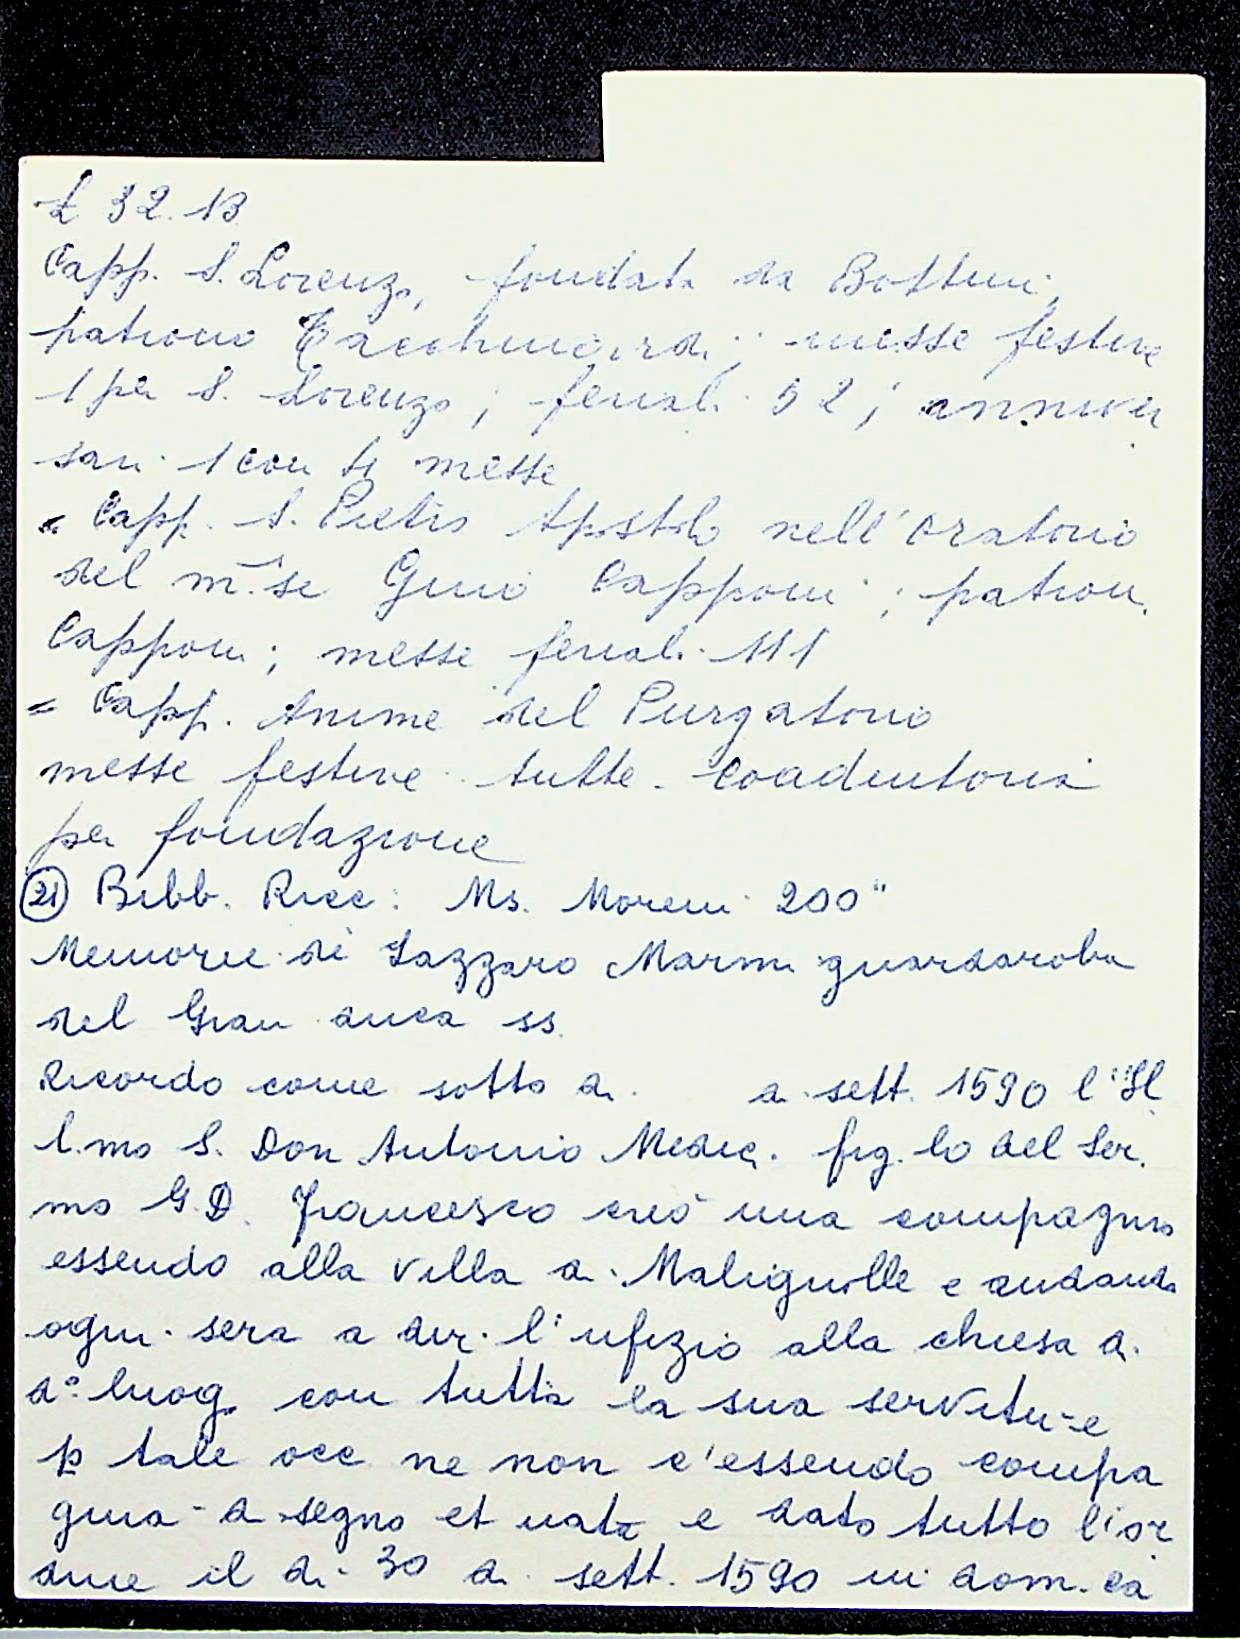 £ 32.13
Capp. S. Lorenzo, fondata da Bottini,
patrono Tacchinardi; messe festive
1 per S. Lorenzo; feriali 52; anniver
sari 1 con 4 messe
= Capp. S. Pietro Apostolo nell'oratorio
del m.se Gino Capponi; patron.
Capponi; messe feriali 111
= Capp. Anime del Purgatorio
messe festive tutte. Coadiutoria
per fondazione
(21) Bibb. Ricc: Ms. Moreni 200"
Memorie di Lazzaro Marmi guardaroba
del Gran duca ss.
Ricordo come sotto di a sett. 1590 l'Il
l.mo S. Don Antonio Medici fig.lo del Ser.
mo G.D. Francesco creò una compagnia
essendo alla villa di Marignolle e andando
ogni sera a dir l'ufizio alla chiesa di
d.o luog. con tutta la sua servitu e
p tale occ ne non c'essendo compa
gnia di segno et e dato tutto l'or
dine il dì 30 di sett. 1590 in dom.ca